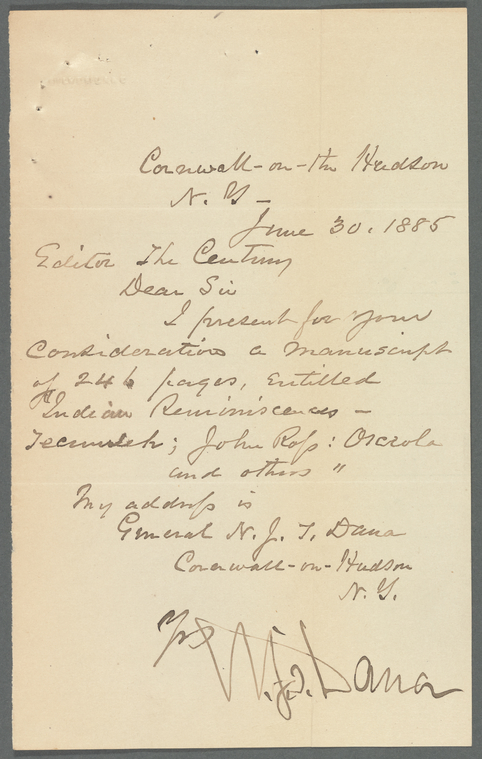 Cornwall-on-the Hudson
N. Y-
June 30. 1885
Editor The Century
Dear Sir
I present for your
Consideration a Manuscript
of 246 pages, entitled
"Indian Reminiscences -
Tecumseh; John Roſs: Osceola
and others "
My addreſs is
General N. J. T. Dana
Cornwall-on-Hudson
N. Y.
Yrs
N.J.T. Dana